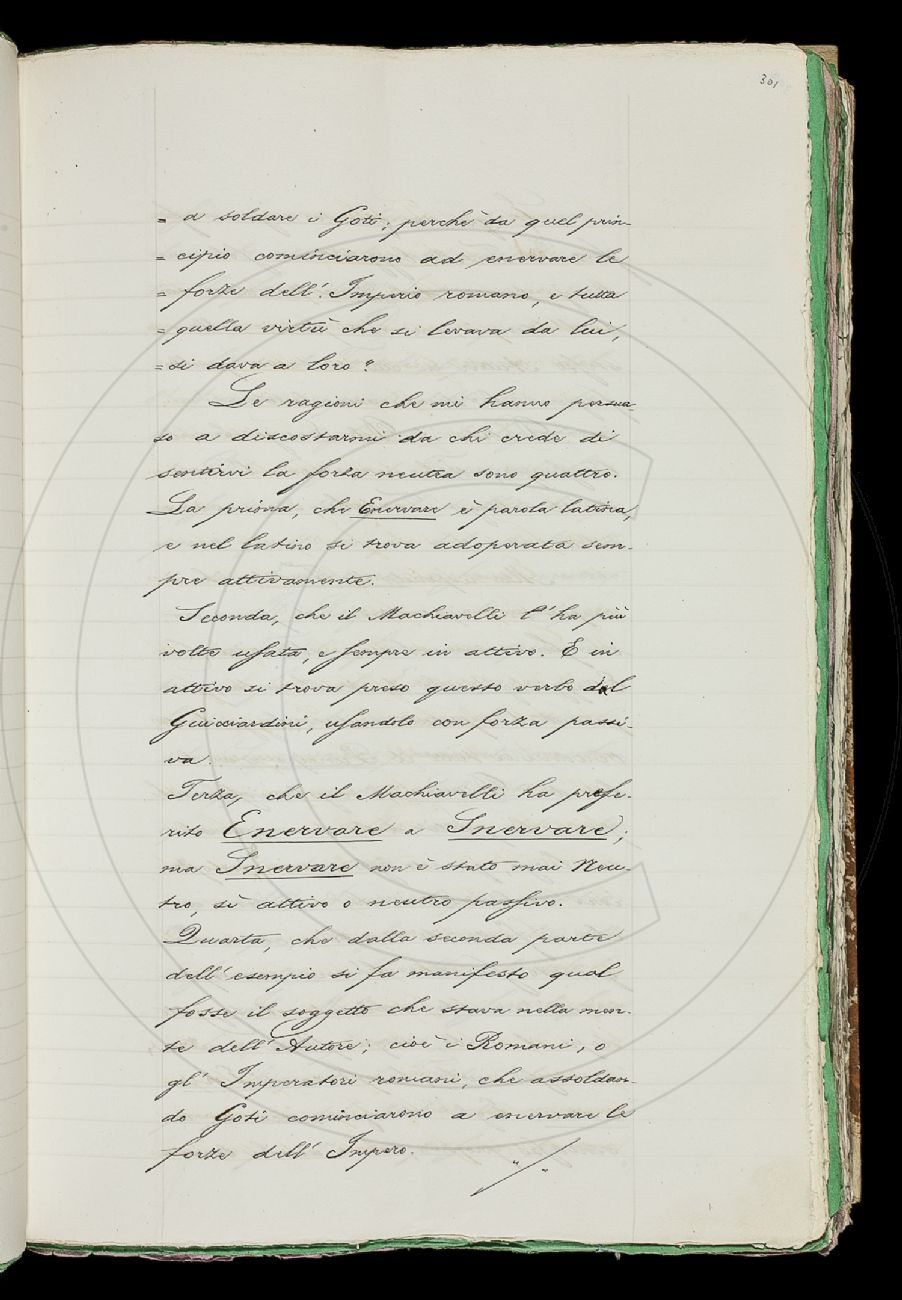 301
= a soldare i Goti; perchè da quel prin-
= cipio cominciarono ad enervare le
= forze dell'Imperio romano, e tutta
= quella virtù che si levava da lui,
= si dava a loro?
Le ragioni che mi hanno persua-
so a discostarmi da chi crede di
sentirvi la forza neutra sono quattro.
La prima, che Enervare è parola latina,
e nel latino si trova adoperata sem-
pre attivamente.
Seconda, che il Machiavelli l'ha più
volte usata, e sempre in attivo. E in
attivo si trova preso questo verbo dal
Guicciardini, usandolo con forza passi-
va.
Terza, che il Machiavelli ha prefe-
rito Enervare a Snervare;
ma Snervare non è stato mai Neu-
tro, sì attivo o neutro passivo.
Quarta, che dalla seconda parte
dell'esempio si fa manifesto qual
fosse il soggetto che stava nella men-
te dell'Autore; cioè i Romani, o
gl'Imperatori romani, che assoldan-
do Goti cominciarono a enervare le
forze dell'Impero.
"/"